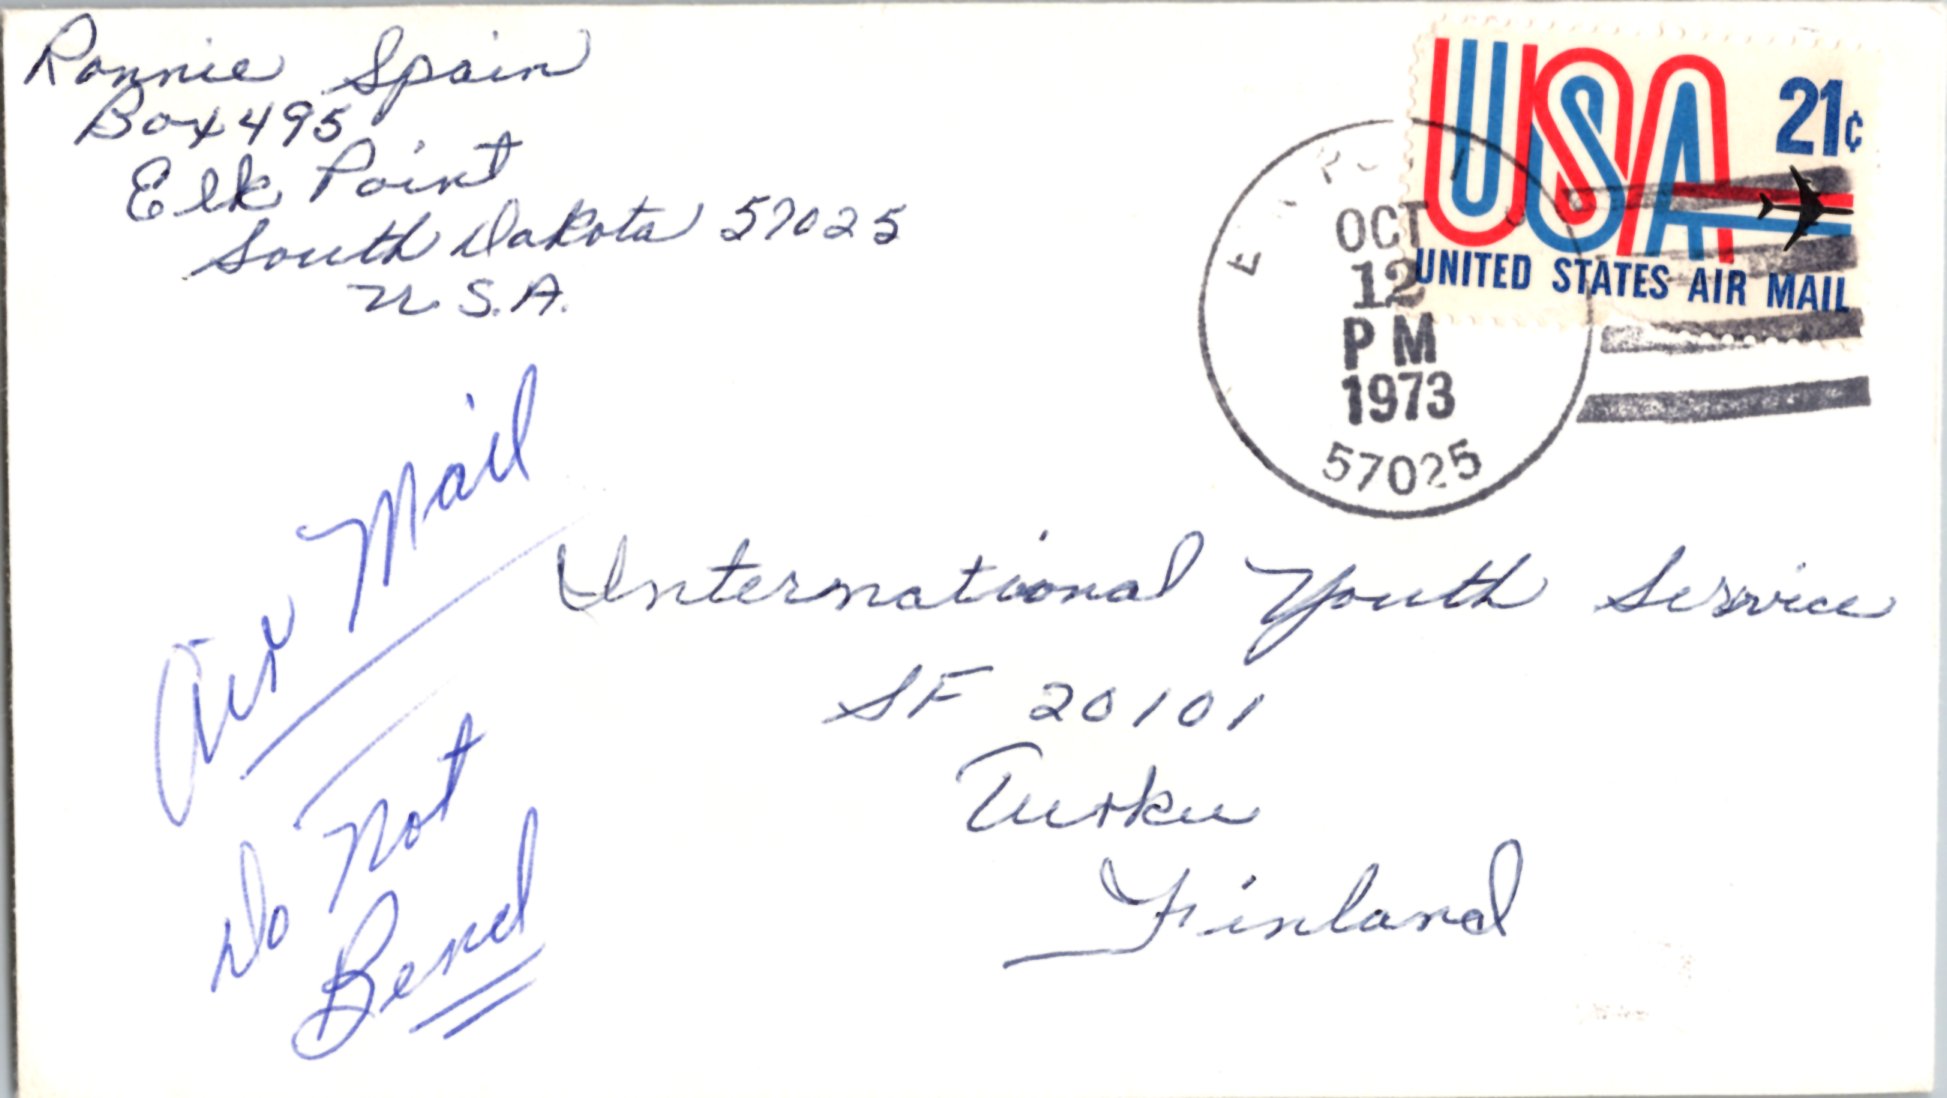 Ronnie Spain
Box 495
Elk Point
South Dakota 57025
U.S.A.
USA 21¢
UNITED STATES AIR MAIL
OCT
12
PM
1973
57025
Air Mail
Do Not
Bend
International Youth Service
SF 20101
Turku
Finland